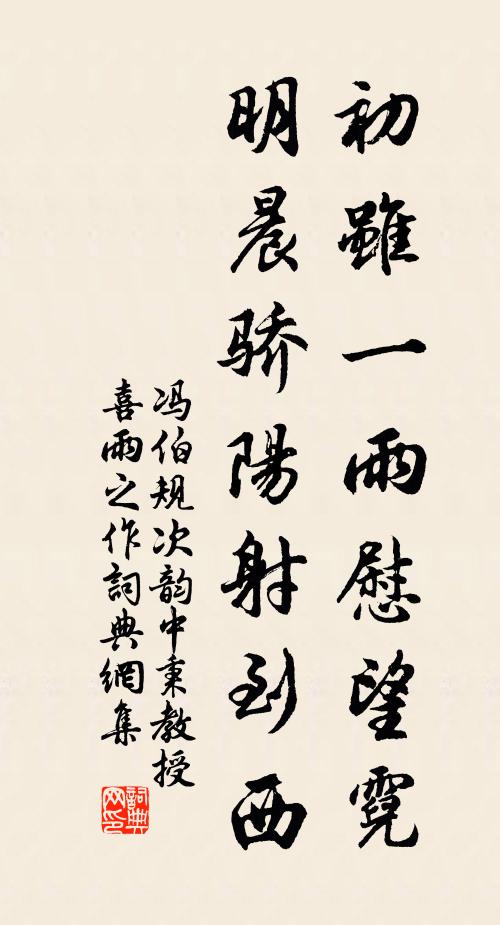 初雖一雨慰望霓
明晨骄陽射到西
冯伯规次韵中秉教授
喜雨之作詞典網集
詞典网印